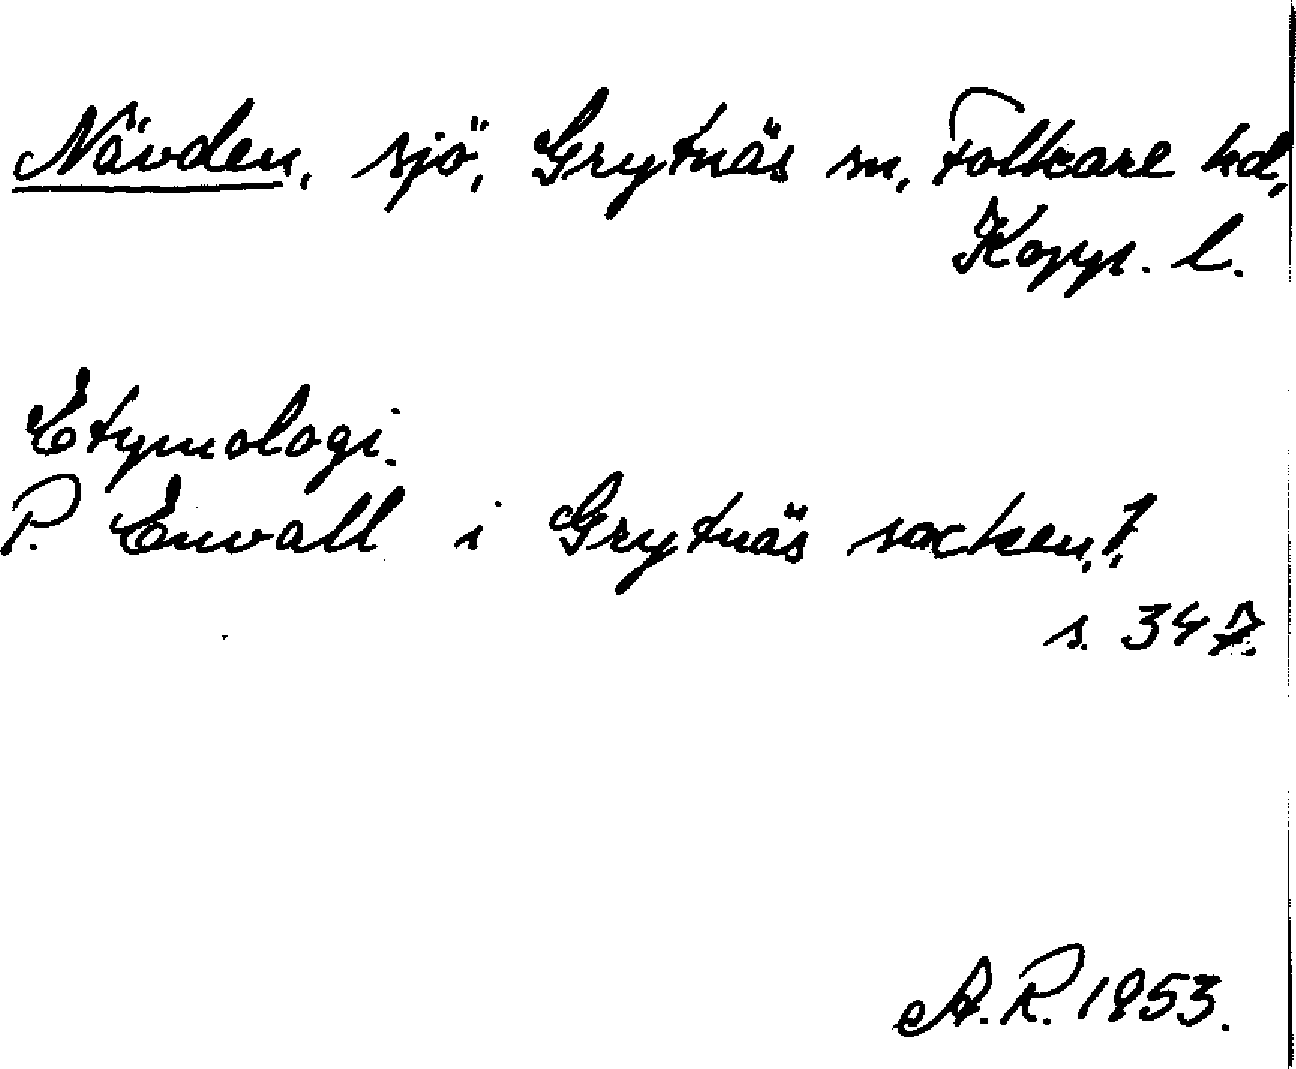 Nävden, sjö, Grytnäs sn, Folkare hd,
Kopp. l.
Etymologi.
P. Envall i Grytnäs socken, 1,
s. 347.
A.R. 1953.